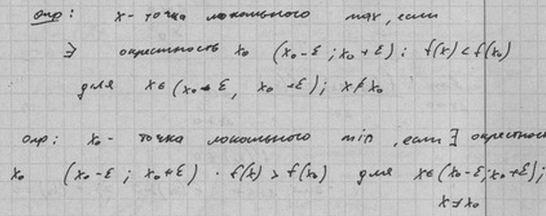 Опр: x - точка локального max, если
∃ окрестность x₀ (x₀-ε; x₀+ε): f(x) < f(x₀)
для x∈(x₀-ε, x₀+ε); x≠x₀
Опр: x₀ - точка локального min, если ∃ окрестность
x₀ (x₀-ε; x₀+ε) · f(x) > f(x₀) для x∈(x₀-ε; x₀+ε);
x≠x₀